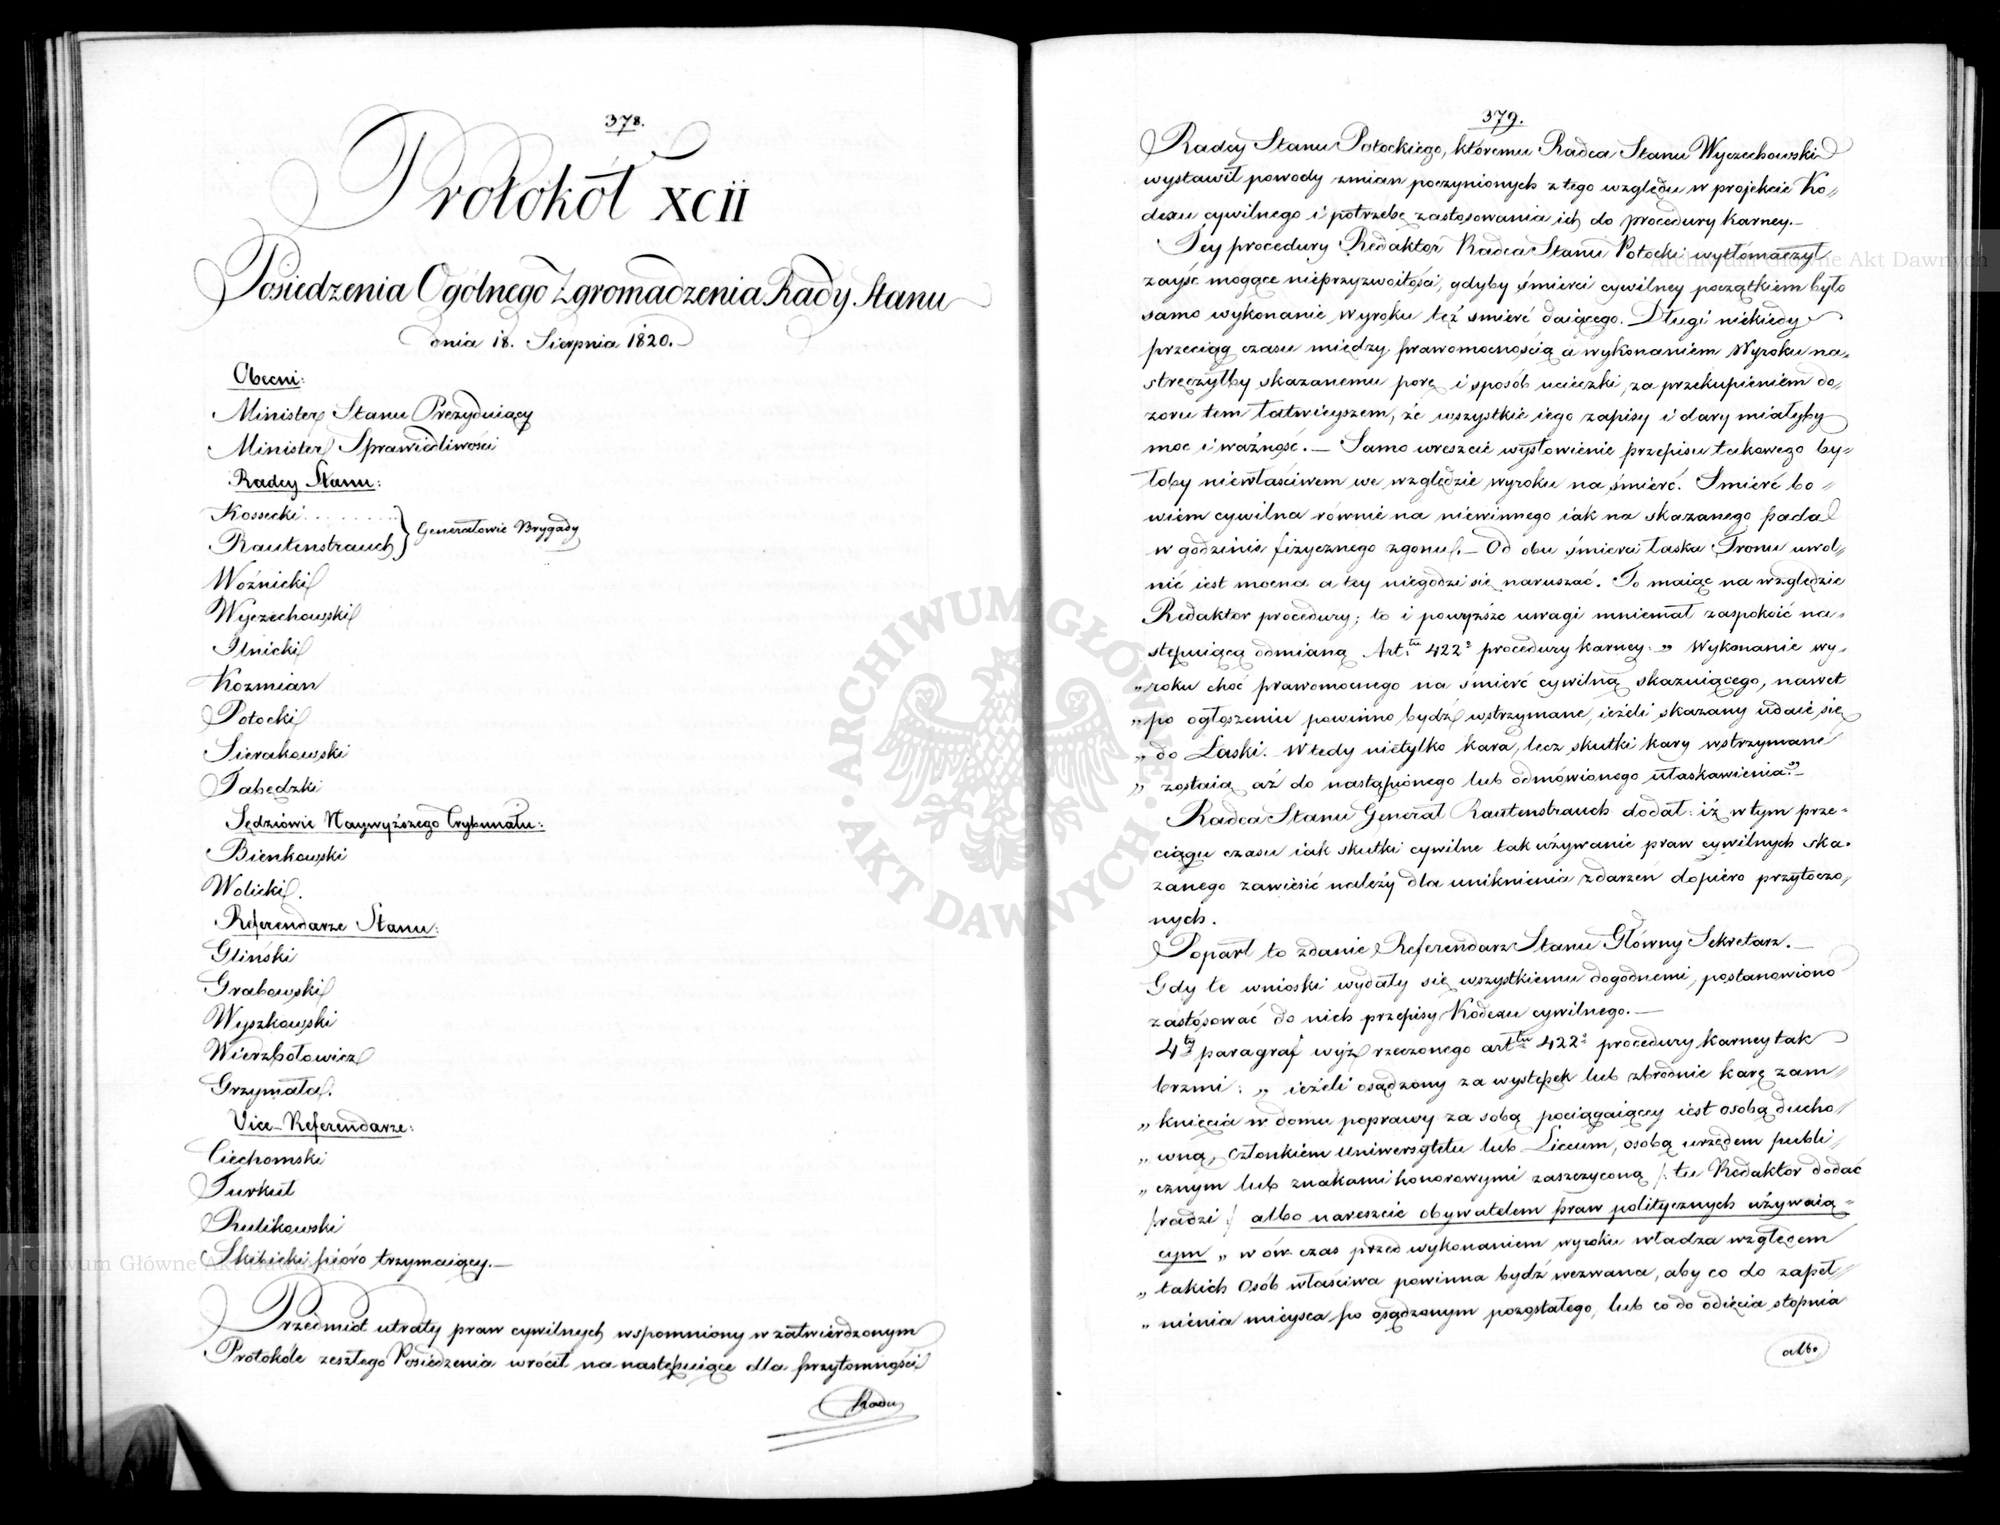 378.
Protokół XCII
Posiedzenia Ogólnego Zgromadzenia Rady Stanu
dnia 18. Sierpnia 1820.
Obecni:
Minister Stanu Prezyduiący
Minister Sprawiedliwości
Radcy Stanu:
Kossecki . . . . . . . . .
Rautenstrauch } Generałowie Brygady
Woźnicki
Wyczechowski
Ilnicki
Kozmian
Potocki
Sierakowski
Tabędzki
Sędziowie Naywyższego Trybunału:
Bienkowski
Wolicki.
Referendarze Stanu:
Gliński
Grabowski
Wyszkowski
Wierzbołowicz
Grzymała.
Vice-Referendarze:
Ciechomski
Turkuł
Rulikowski
Skibicki pióro trzymaiący.—
Przedmiot utraty praw cywilnych wspomniony w zatwierdzonym
Protokóle zeszłego Posiedzenia wrócił na następuiące dla przytomności
Radcy
379.
Radcy Stanu Potockiego, któremu Radca Stanu Wyczechowski
wystawił powody zmian poczynionych z tego względu w projekcie Ko„
dexu cywilnego i potrzebę zastosowania ich do procedury karney.—
Tey procedury Redaktor Radca Stanu Potocki wytłómaczył
zayść mogące nieprzyzwoitości, gdyby śmierci cywilney początkiem było
samo wykonanie wyroku też śmierć daiącego. Długi niekiedy
przeciąg czasu między prawomocnością a wykonaniem wyroku na„
stręczyłby skazanemu porę i sposób ucieczki, za przekupieniem do„
zoru tem łatwieyszem, że wszystkie iego zapisy i dary miałyby
moc i ważność.— Samo wreszcie wysłowienie przepisu takowego by„
łoby niewłaściwem we względzie wyroku na śmierć. Śmierć bo„
wiem cywilna równie na niewinnego iak na skazanego pada
w godzinie fizycznego zgonu.— Od obu śmierci łaska Tronu uwol„
nić iest mocna a tey niegodzi się naruszać. To maiąc na względzie
Redaktor procedury; to i powyższe uwagi mniemał zaspokoić na„
stępuiącą odmianą Art.tu 422° procedury karney: „Wykonanie wy„
„roku choć prawomocnego na śmierć cywilną skazuiącego, nawet
„po ogłoszeniu powinno bydź wstrzymane, ieżeli skazany udaie się
„do Łaski. Wtedy nietylko kara, lecz skutki kary wstrzymane
„zostaią aż do nastąpionego lub odmówionego ułaskawienia."—
Radca Stanu Generał Rautenstrauch dodał: iż w tym prze„
ciągu czasu iak skutki cywilne tak używanie praw cywilnych ska„
zanego zawiesić należy dla uniknienia zdarzeń dopiéro przytoczo„
nych.
Poparł to zdanie Referendarz Stanu Główny Sekretarz.—
Gdy te wnioski wydały się wszystkiemu dogodnemi, postanowiono
zastósować do nich przepisy Kodexu cywilnego.—
4ty paragraf wyż rzeczonego arttu 422° procedury karney tak
brzmi: „ieżeli osądzony za występek lub zbrodnie karę zam„
„knięcia w domu poprawy za sobą pociągaiącey iest osobą ducho„
„wną, członkiem uniwersytetu lub Liceum, osobą urzędem publi„
„cznym lub znakami honorowymi zaszczyconą /: tu Redaktor dodać
radzi :/ albo nareszcie obywatelem praw politycznych używaią„
cym „w ów czas przed wykonaniem wyroku władza względem
„takich osób właściwa powinna bydź wezwana, aby co do zapeł„
„nienia mieysca po osądzonym pozostałego, lub co do odięcia stopnia
albo
ARCHIWUM GŁÓWNE AKT DAWNYCH
Archiwum Główne Akt Dawnych
Archiwum Główne Akt Dawnych